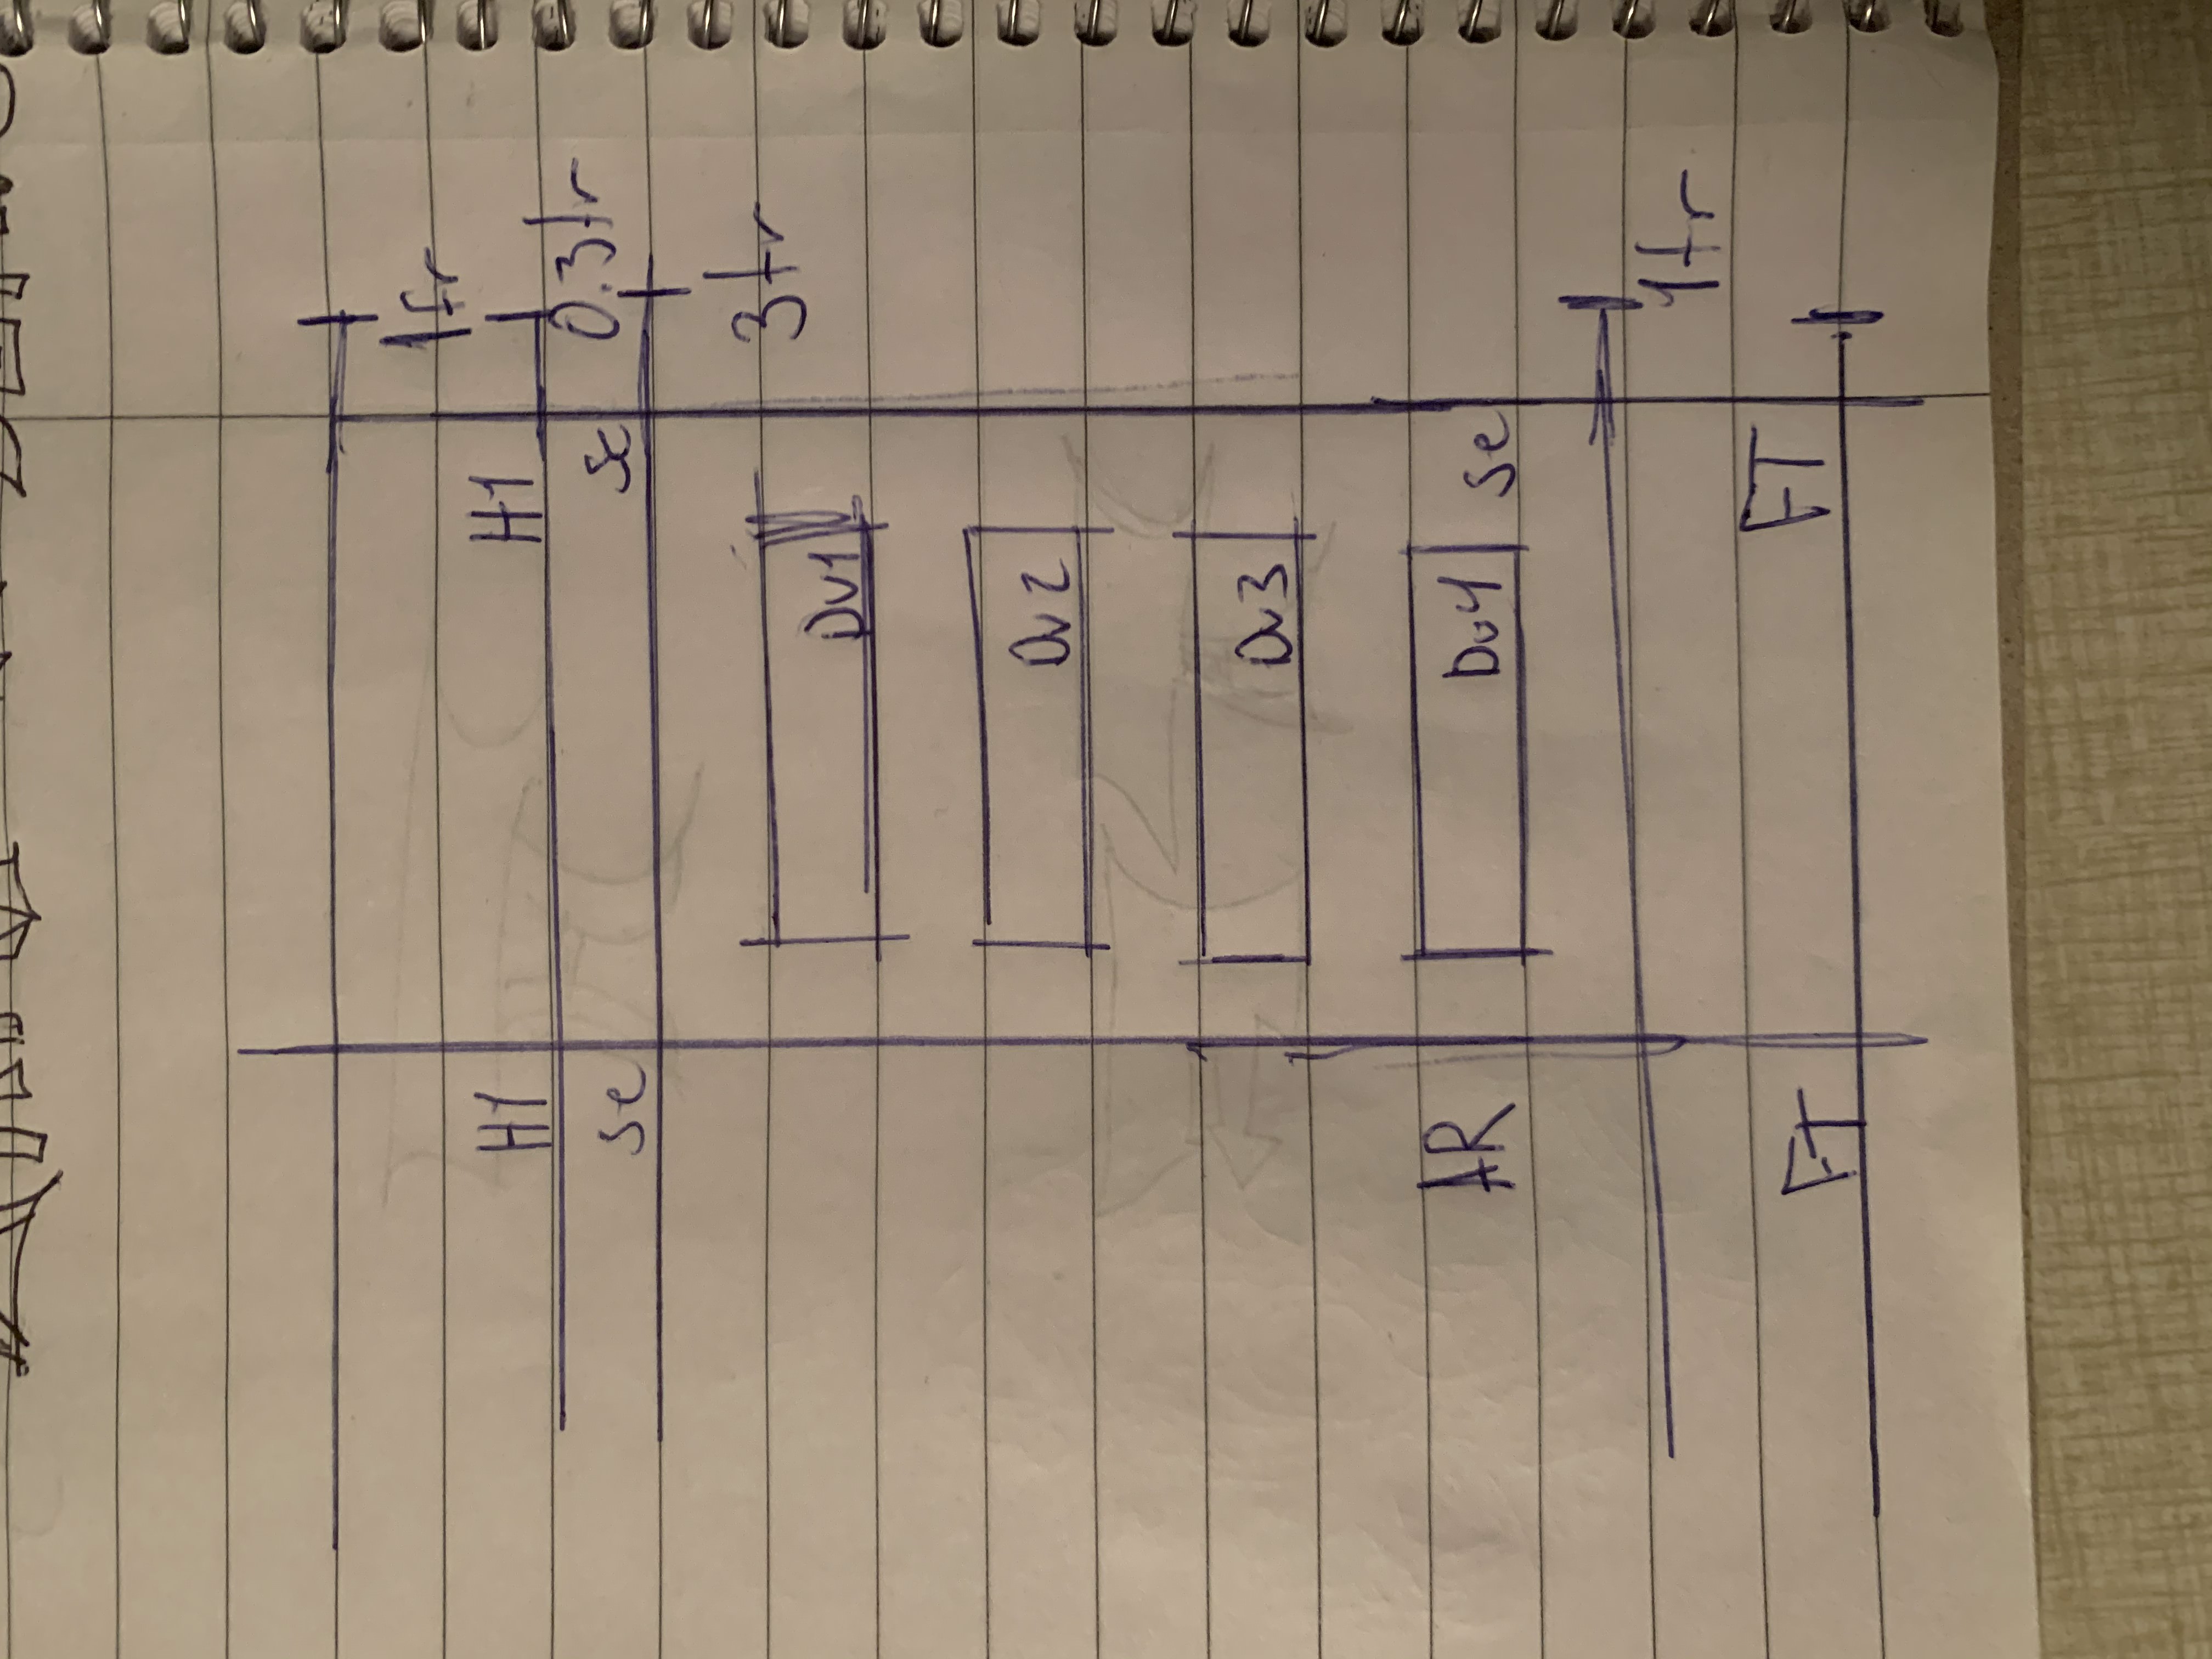 1fr
H1 H1
0.3fr
Se Se
3fr
Dv1
Dv2
Dv3
AR Dv4 Se
1fr
FT FT